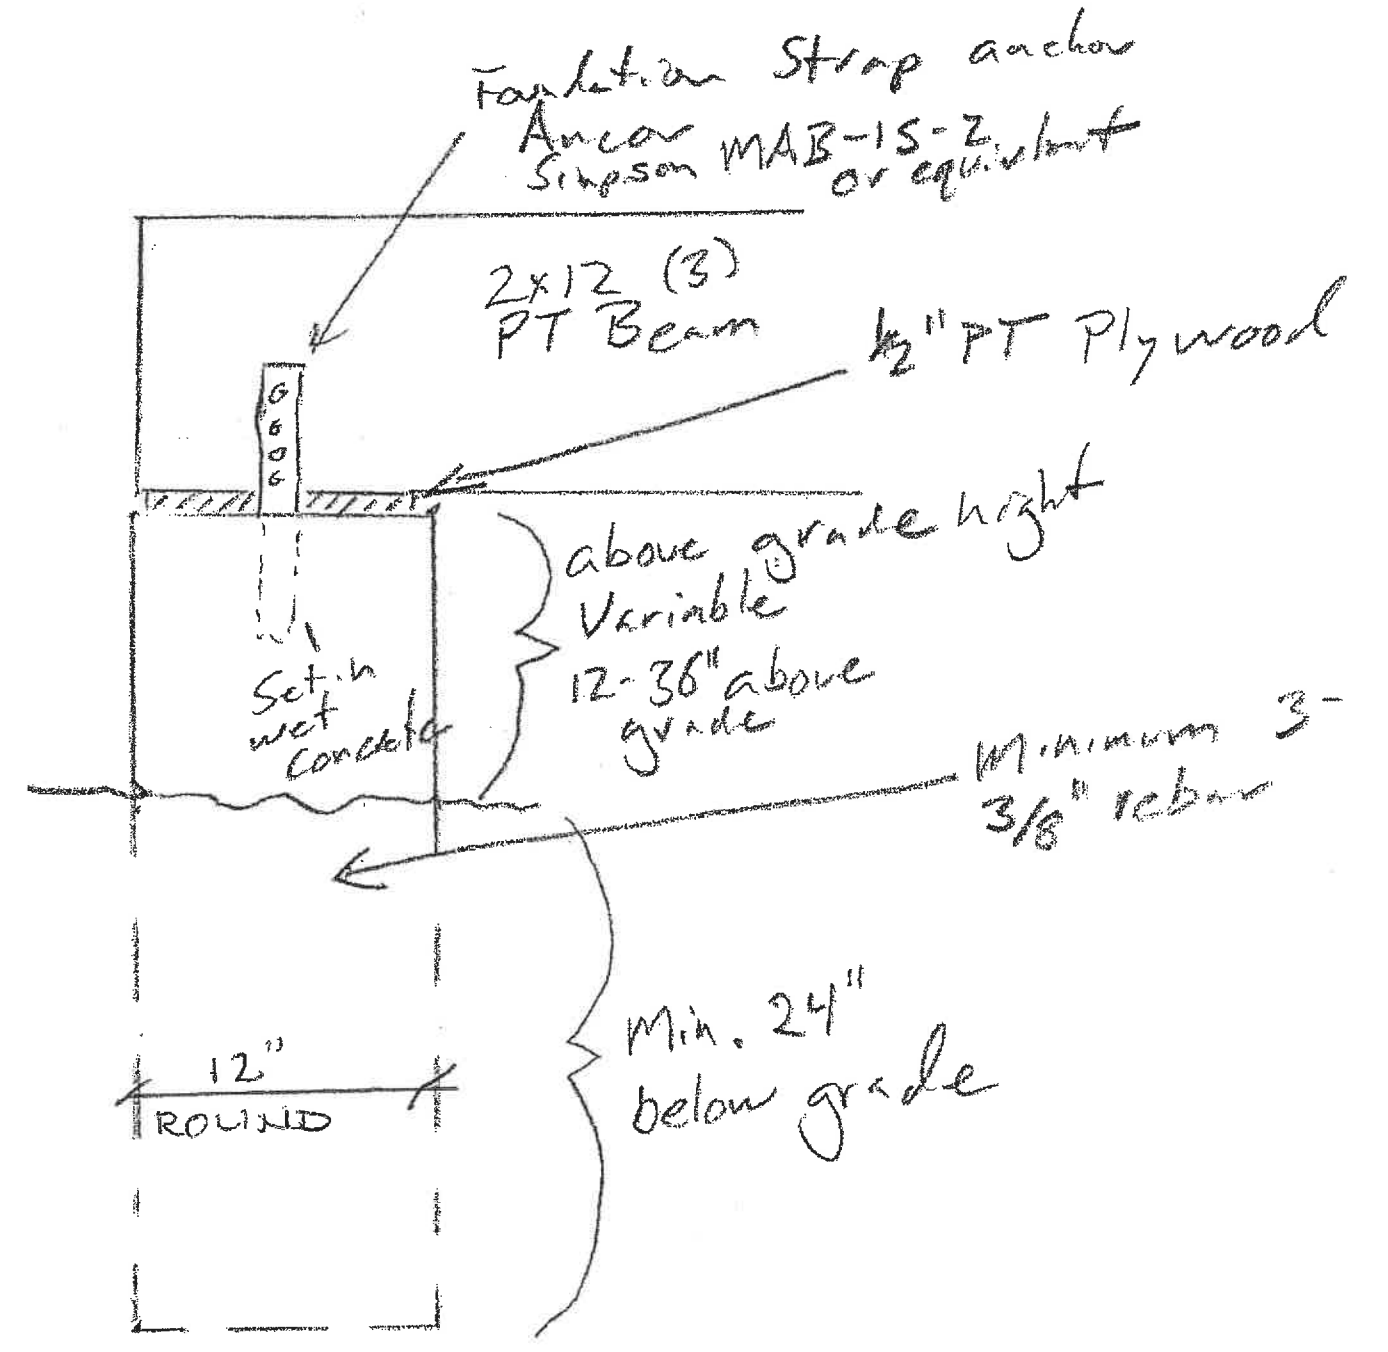 Foundation Strap anchor
Ancor
Simpson MAB-15-2
or equivlant
2x12 (3)
PT Beam
1/2" PT Plywood
above grade hight
Variable
12-36" above
grade
Set in
wet
concrete
Minimum 3-
3/8" rebar
Min. 24"
below grade
12"
ROUND